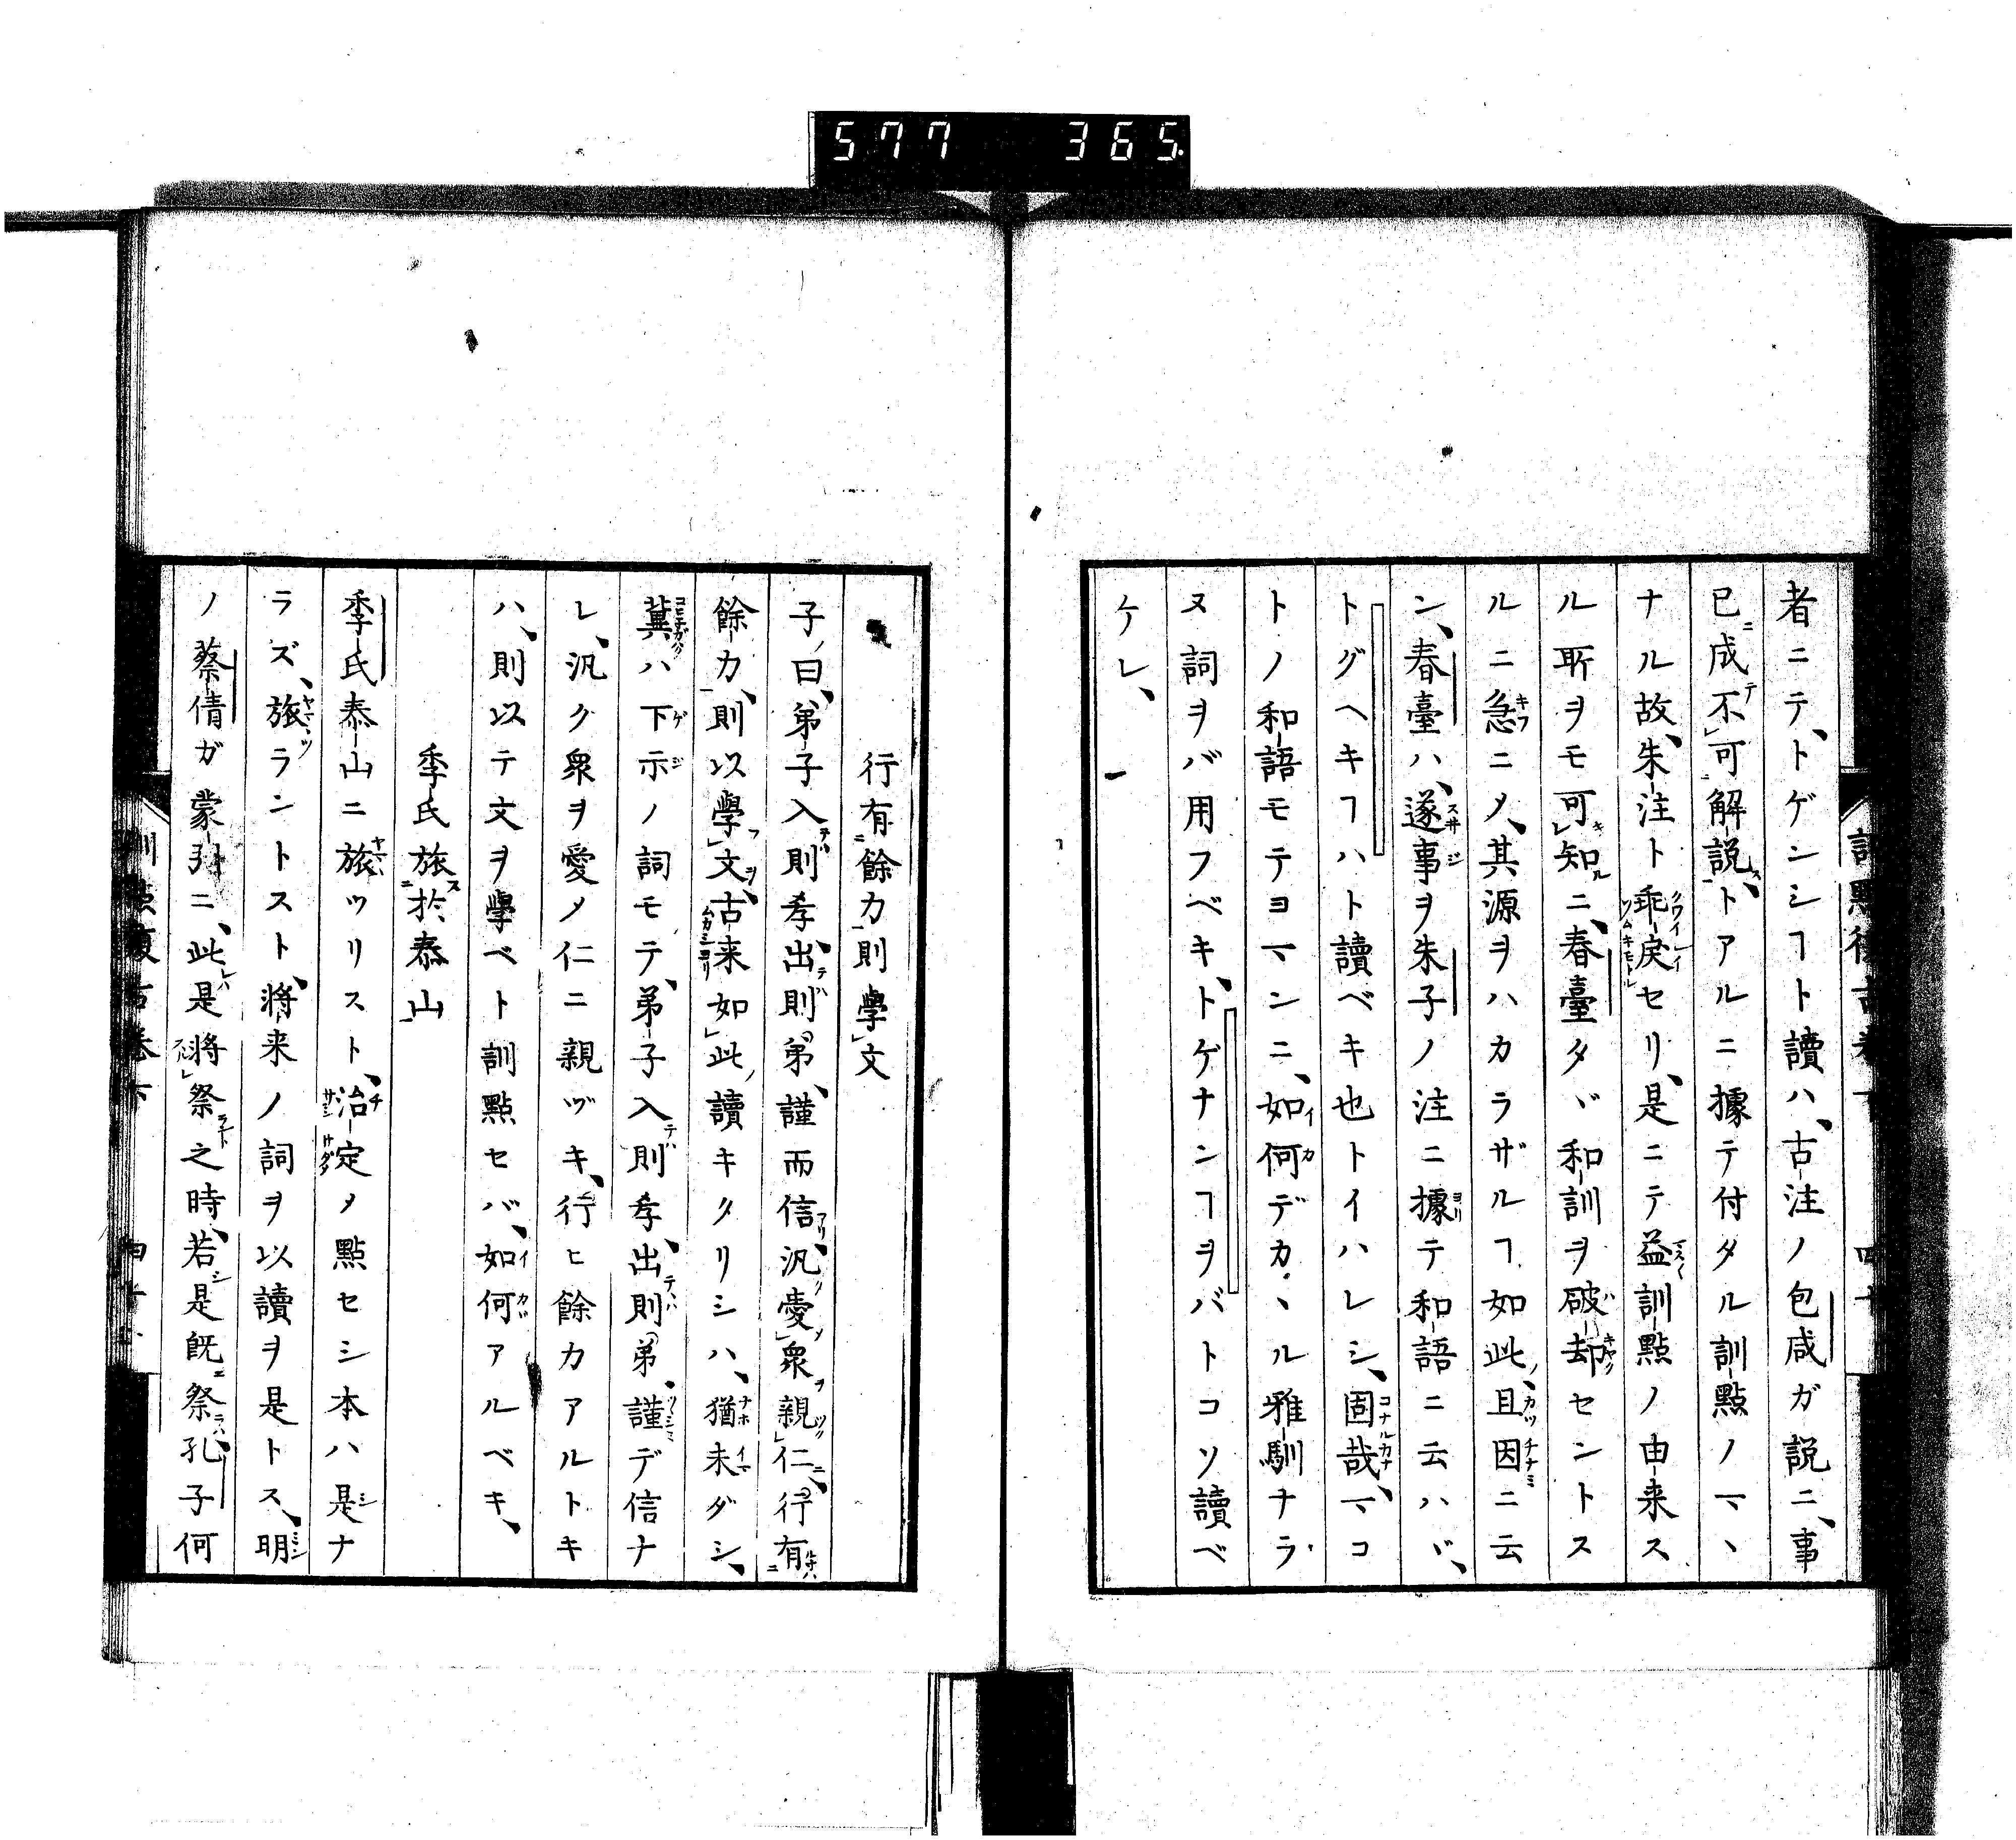 577 365
者ニテ、トゲンシヿト讀ハ、古注ノ包咸ガ説ニ、事
已成不可解説、トアルニ據テ付タル訓點ノマヽ
ナル故、朱注ト乖戻セリ、是ニテ益訓點ノ由来ス
ル所ヲモ可知ニ、春臺タヾ和訓ヲ破却セントス
ルニ急ニメ、其源ヲハカラザルヿ如此、且因ニ云
ン、春臺ハ、遂事ヲ朱子ノ注ニ據テ和語ニ云ハヾ、
トグヘキヿハト讀ベキ也トイハレシ、固哉、マコ
トノ和語モテヨマンニ、如何デカヽル雅馴ナラ
ヌ詞ヲバ用フベキ、トゲナンヿヲバトコソ讀ベ
ケレ、
行有餘力則學文
子曰、弟子入則孝、出則弟、謹而信、汎愛衆親仁、行有
餘力、則以學文、古来如此讀キタリシハ、猶未ダシ、
冀ハ下示ノ詞モテ、弟子入則孝、出則弟、謹デ信ナ
レ、汎ク衆ヲ愛メ仁ニ親ヅキ、行ヒ餘力アルトキ
ハ、則以テ文ヲ學ベト訓點セバ、如何アルベキ、
季氏旅於泰山
季氏泰山ニ旅ツリスト、治定メ點セシ本ハ是ナ
ラズ、旅ラントスト、將来ノ詞ヲ以讀ヲ是トス、明
ノ蔡倩ガ蒙引ニ、此是將祭之時、若是既祭、孔子何